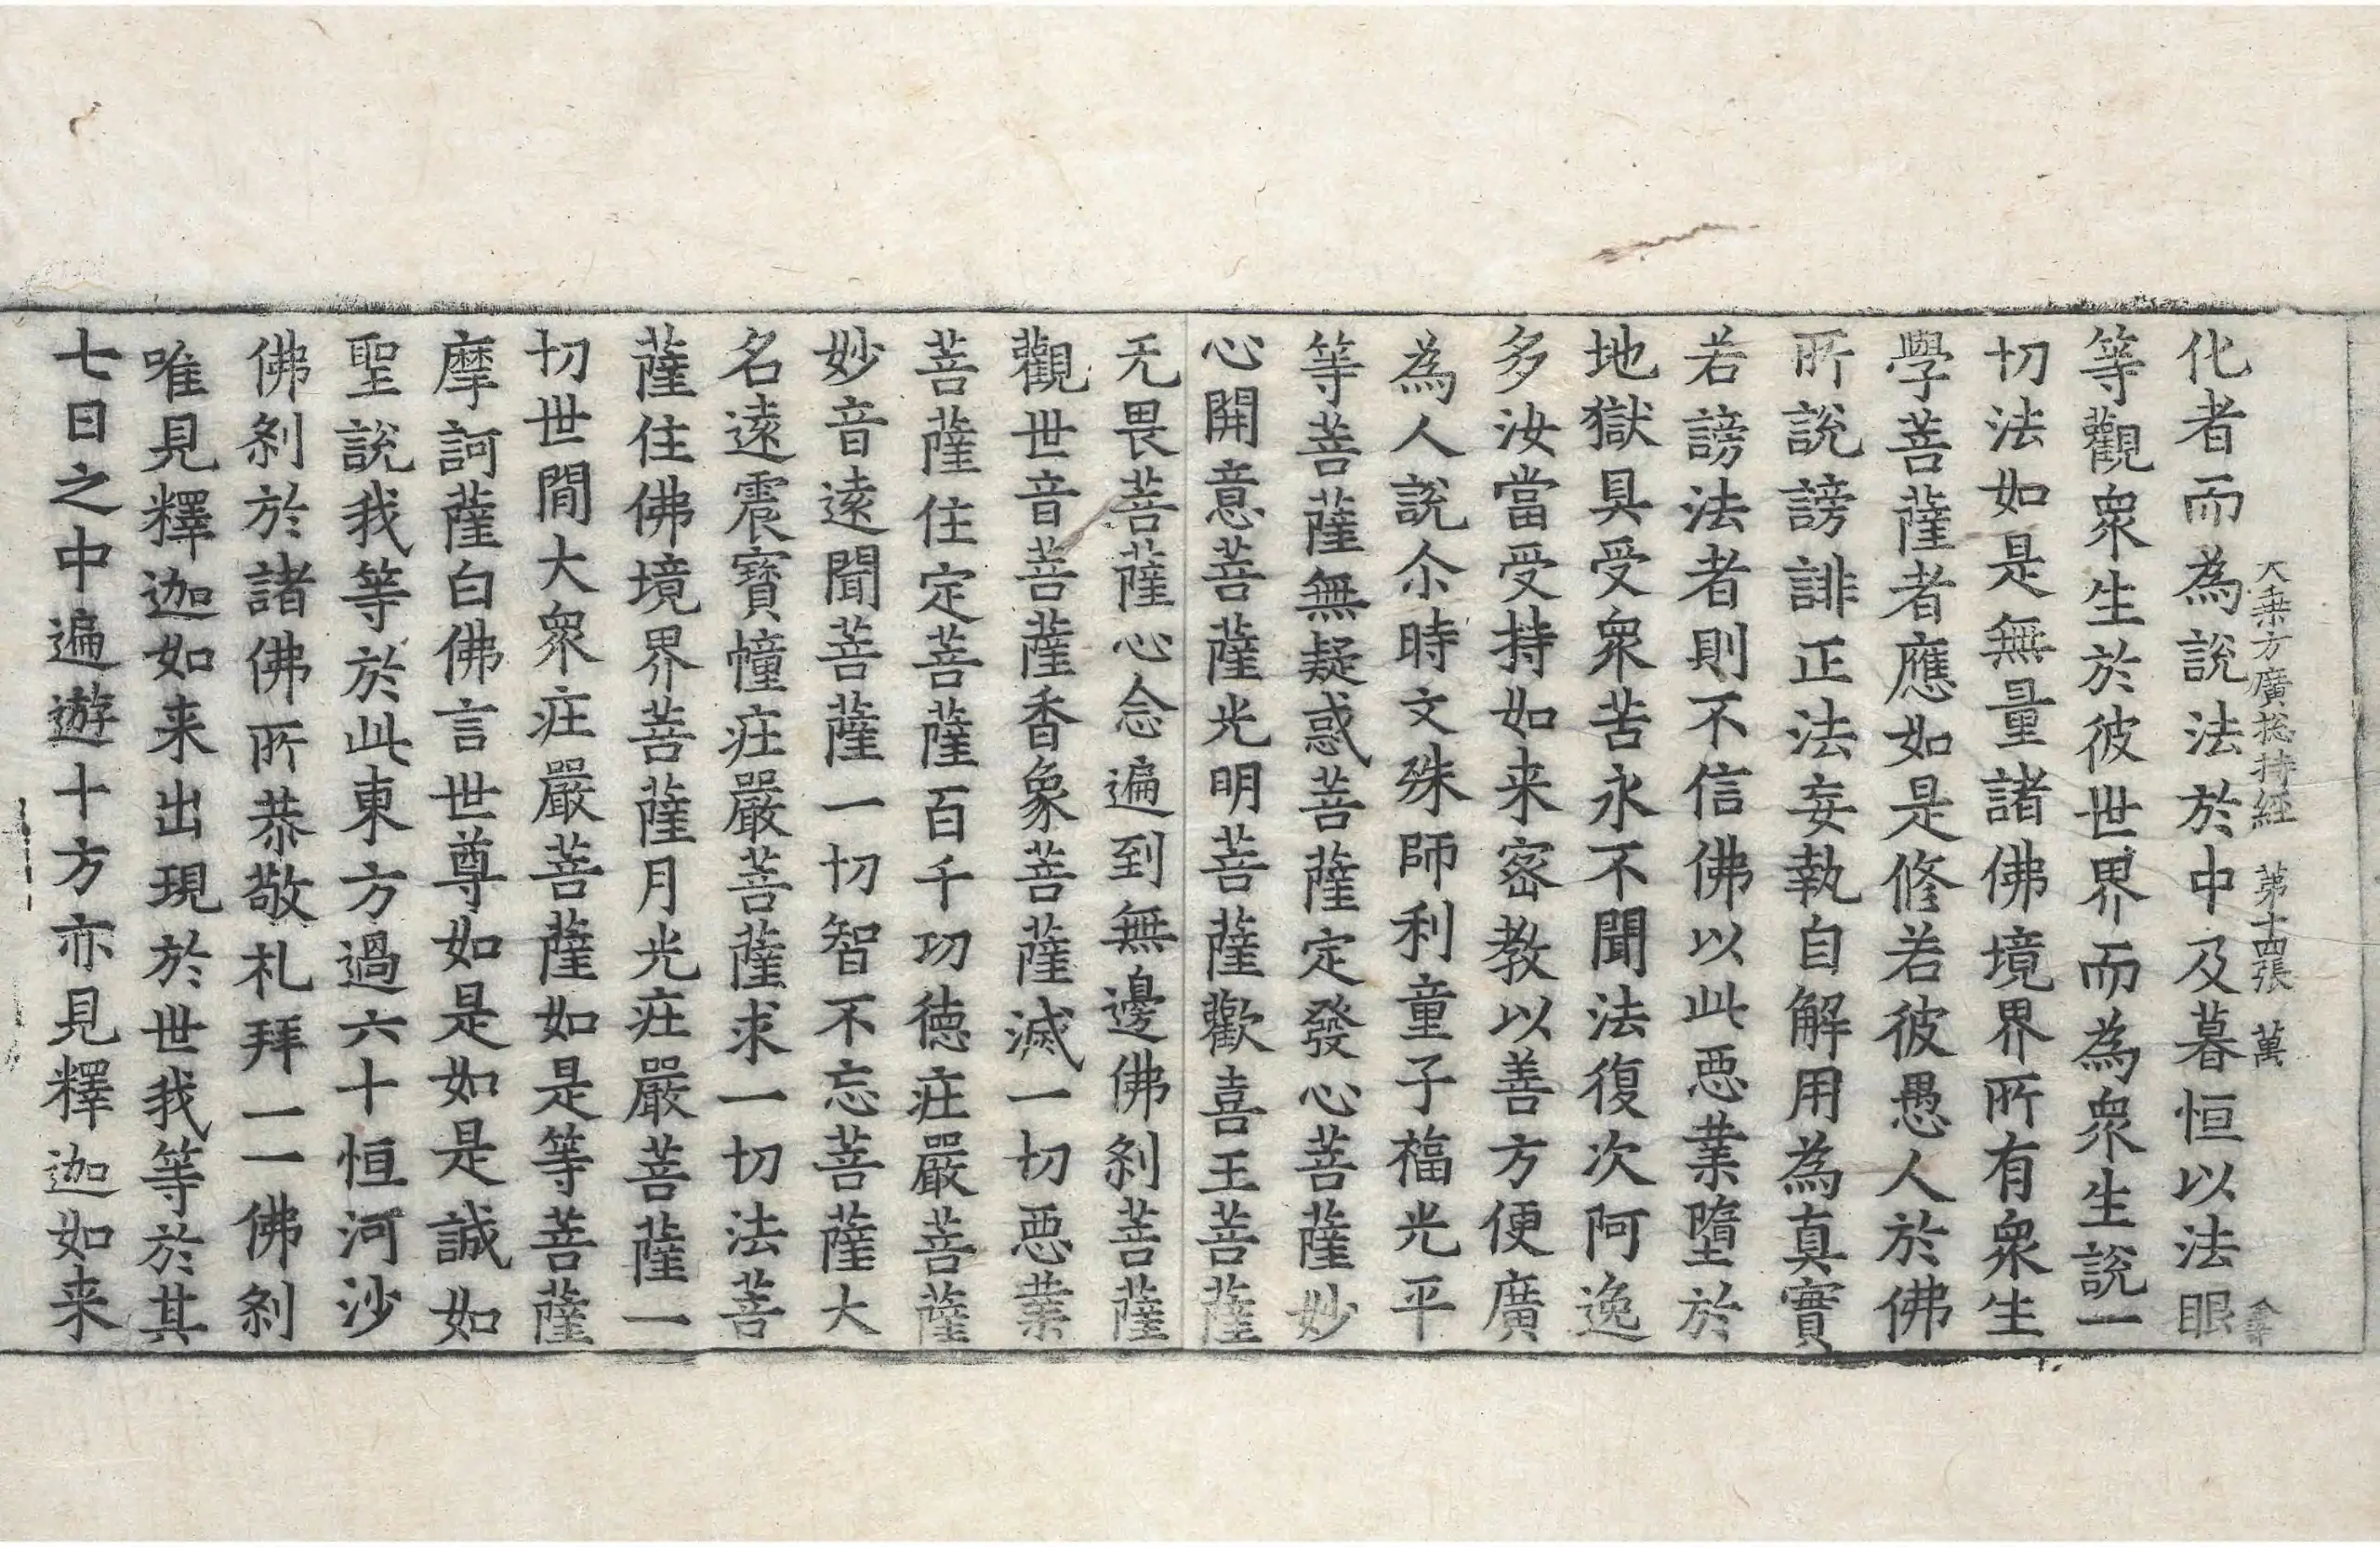 大乗方廣揔持經 第十四張 萬
化者而為說法於中及暮恒以法眼
等觀衆生於彼世界而為衆生說一
切法如是無量諸佛境界所有衆生
學菩薩者應如是修若彼愚人於佛
所說謗誹正法妄執自解用為真實
若謗法者則不信佛以此悪業墮於
地獄具受衆苦永不聞法復次阿逸
多汝當受持如来密教以善方便廣
為人說尒時文殊師利童子福光平
等菩薩無疑惑菩薩定發心菩薩妙
心開意菩薩光明菩薩歡喜王菩薩
无畏菩薩心念遍到無邊佛刹菩薩
觀世音菩薩香象菩薩滅一切悪業
菩薩住定菩薩百千功徳庄嚴菩薩
妙音遠聞菩薩一切智不忘菩薩大
名遠震寶幢庄嚴菩薩求一切法菩
薩住佛境界菩薩月光庄嚴菩薩一
切世間大衆庄嚴菩薩如是等菩薩
摩訶薩白佛言世尊如是如是誠如
聖說我等於此東方過六十恒河沙
佛刹於諸佛所恭敬礼拜一一佛刹
唯見釋迦如来出現於世我等於其
七日之中遍遊十方亦見釋迦如来